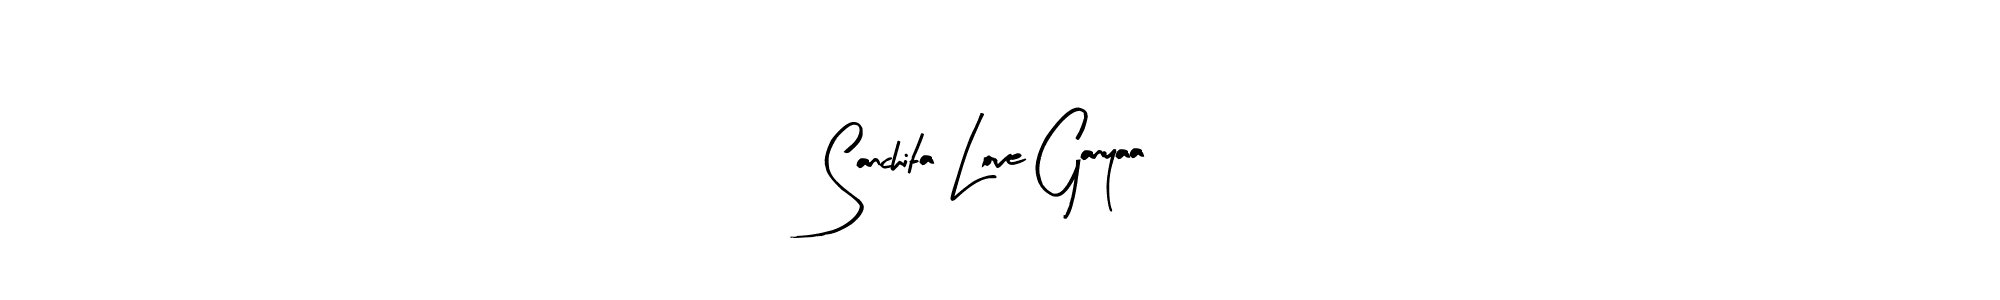 Sanchita Love Ganyaa